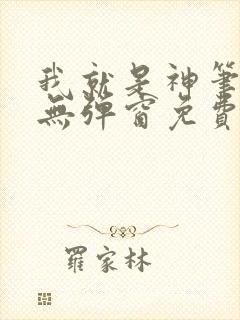 我就是神筆
無彈窗免費
羅家林